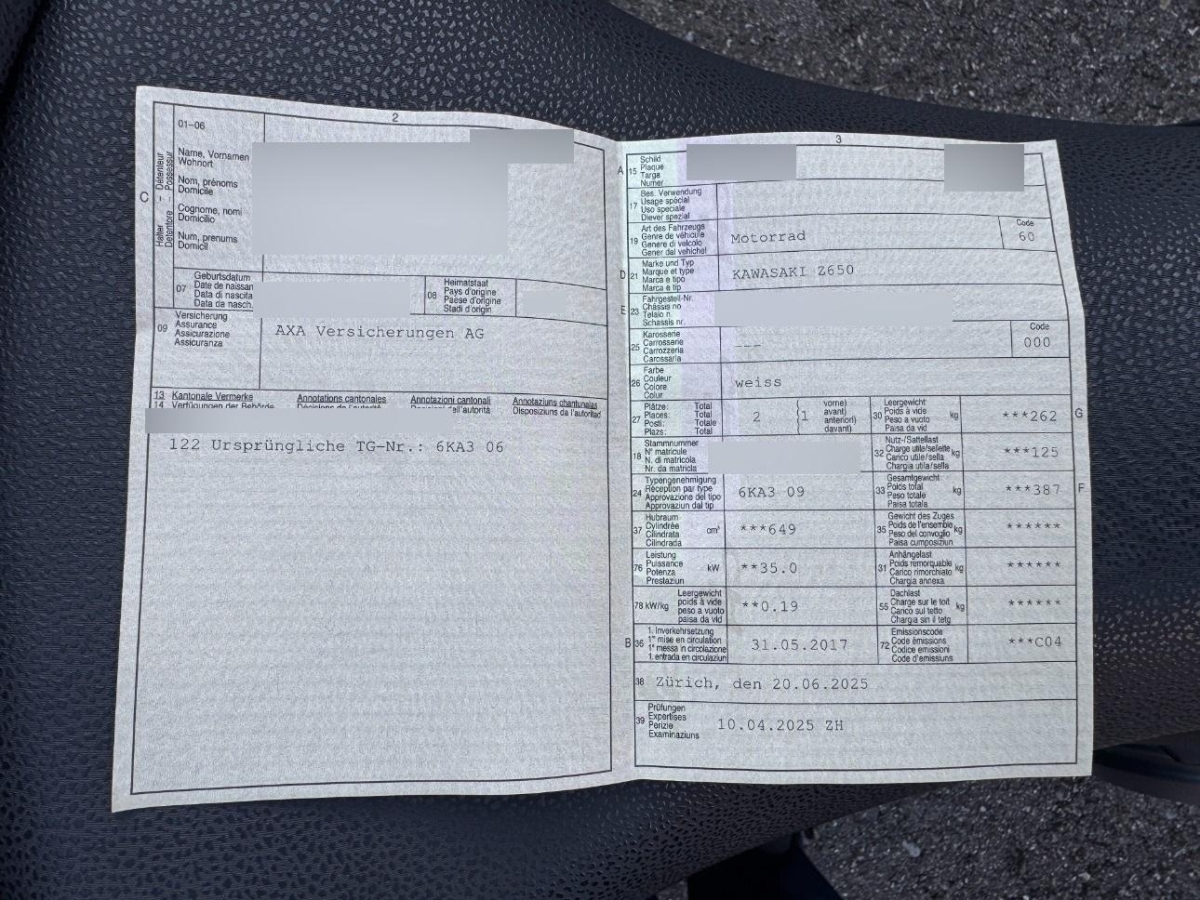 2
01-06
C
Halter – Détenteur
Detentore – Possessur
Name, Vornamen
Wohnort
Nom, prénoms
Domicile
Cognome, nomi
Domicilio
Num, prenums
Domicil
07
Geburtsdatum
Date de naissan
Data di nascita
Data da nasch.
08
Heimatstaat
Pays d'origine
Paese d'origine
Stadi d'origin
09
Versicherung
Assurance
Assicurazione
Assicuranza
AXA Versicherungen AG
13 Kantonale Vermerke Annotations cantonales Annotazioni cantonali Annotaziuns chantunalas
14 Verfügungen der Behörde Décisions de l'autorité Decisioni dell'autorità Disposiziuns da l'autoritad
122 Ursprüngliche TG-Nr.: 6KA3 06
3
A 15
Schild
Plaque
Targa
Numer
17
Bes. Verwendung
Usage spécial
Uso speciale
Diever spezial
19
Art des Fahrzeugs
Genre de véhicule
Genere di veicolo
Gener dal vehichel
Motorrad
Code
60
D 21
Marke und Typ
Marque et type
Marca e tipo
Marca e tip
KAWASAKI Z650
E 23
Fahrgestell-Nr.
Châssis no
Telaio n.
Schassis nr.
25
Karosserie
Carrosserie
Carrozzeria
Carossaria
---
Code
000
26
Farbe
Couleur
Colore
Colur
weiss
27
Plätze: Total
Places: Total
Posti: Totale
Plazs: Total
2
1
vorne)
avant)
anteriori)
davant)
30
Leergewicht
Poids à vide
Peso a vuoto
Paisa da vid
kg
***262
G
18
Stammnummer
N° matricule
N. di matricola
Nr. da matricla
32
Nutz-/Sattellast
Charge utile/sellette
Carico utile/sella
Chargia utila/sella
kg
***125
24
Typengenehmigung
Réception par type
Approvazione del tipo
Approvaziun dal tip
6KA3 09
33
Gesamtgewicht
Poids total
Peso totale
Paisa totala
kg
***387
F
37
Hubraum
Cylindrée
Cilindrata
Cilindrada
cm³
***649
35
Gewicht des Zuges
Poids de l'ensemble
Peso del convoglio
Paisa cumposiziun
kg
******
76
Leistung
Puissance
Potenza
Prestaziun
kW
**35.0
31
Anhängelast
Poids remorquable
Carico rimorchiato
Chargia annexa
kg
******
78 kW/kg
Leergewicht
poids à vide
peso a vuoto
paisa da vid
**0.19
55
Dachlast
Charge sur le toit
Carico sul tetto
Chargia sin il tetg
kg
******
B 36
1. Inverkehrsetzung
1re mise en circulation
1a messa in circolazione
1. entrada en circulaziun
31.05.2017
72
Emissionscode
Code émissions
Codice emissioni
Code d'emissiuns
***C04
38
Zürich, den 20.06.2025
39
Prüfungen
Expertises
Perizie
Examinaziuns
10.04.2025 ZH